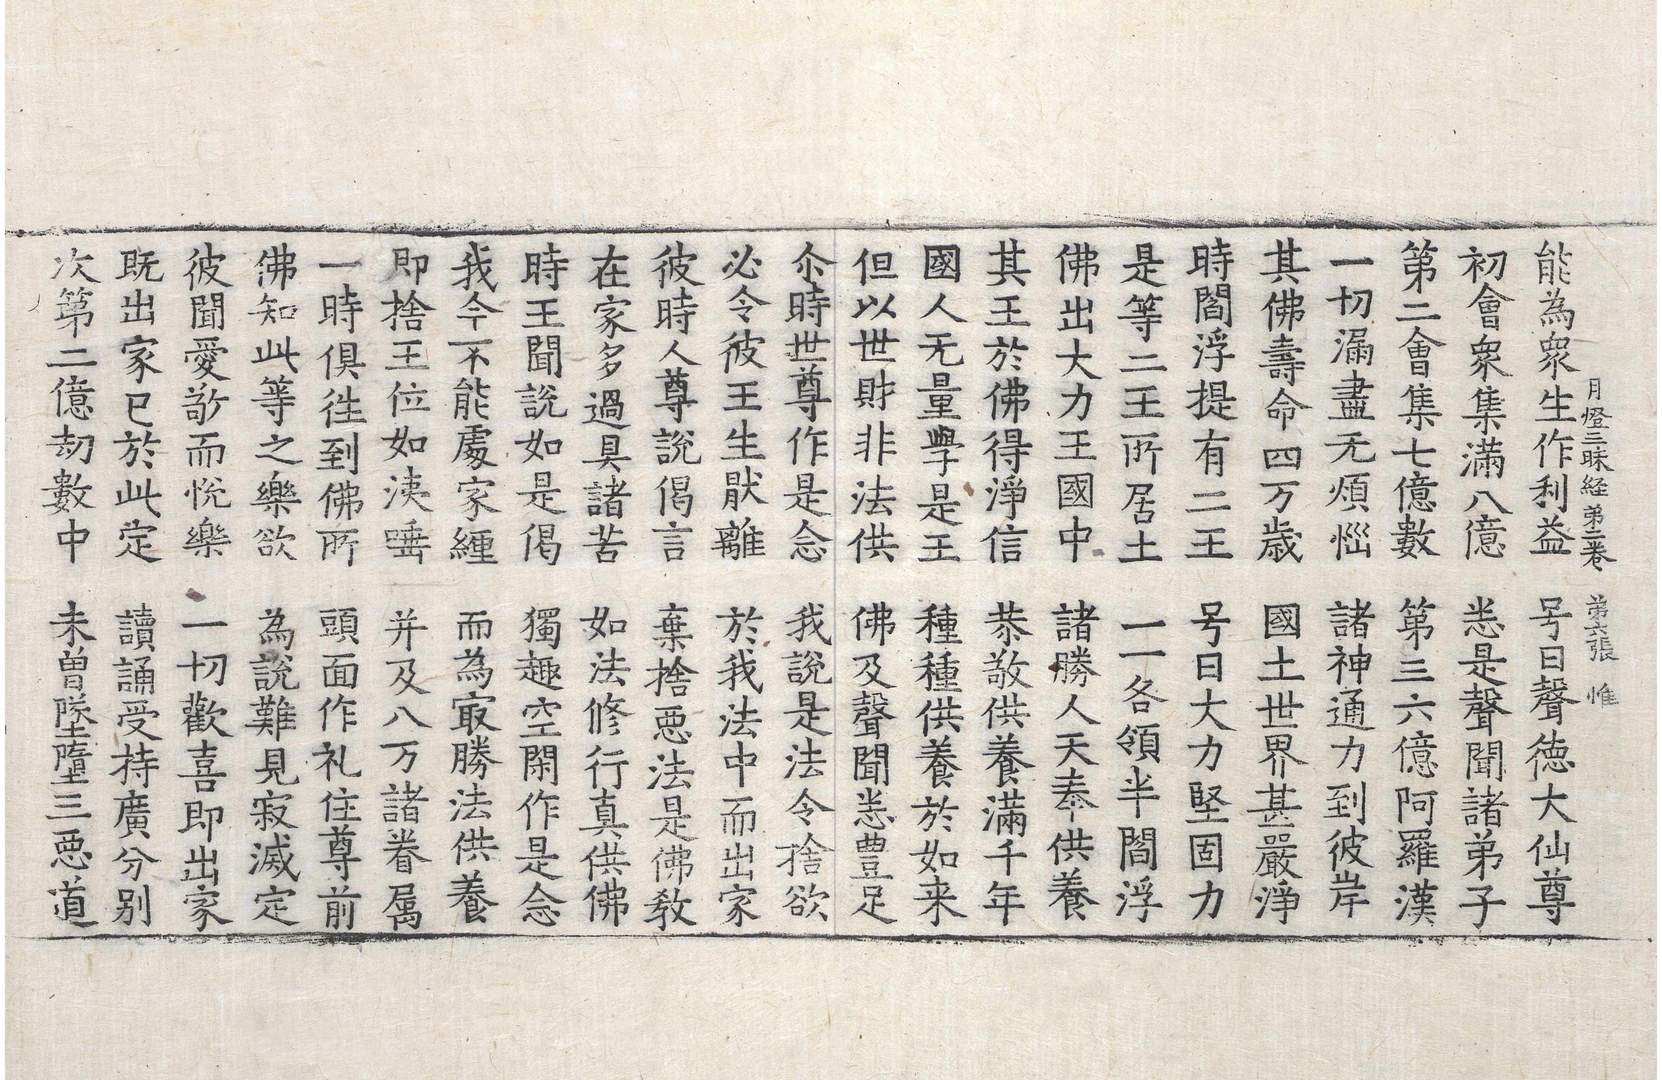 月燈三昧経第二巻 第六張 惟
能為衆生作利益 号曰聲徳大仙尊
初會衆集滿八億 悉是聲聞諸弟子
第二會集七億數 第三六億阿羅漢
一切漏盡无煩惱 諸神通力到彼岸
其佛壽命四万歳 國土世界甚嚴淨
時閻浮提有二王 号曰大力堅固力
是等二王所居土 一一各領半閻浮
佛出大力王國中 諸勝人天奉供養
其王於佛得淨信 恭敬供養滿千年
國人无量學是王 種種供養於如来
但以世財非法供 佛及聲聞悉豊足
尒時世尊作是念 我說是法令捨欲
必令彼王生猒離 於我法中而出家
彼時人尊說偈言 棄捨惡法是佛教
在家多過具諸苦 如法修行真供佛
時王聞說如是偈 獨趣空閑作是念
我今不能處家纏 而為冣勝法供養
即捨王位如洟唾 并及八万諸眷属
一時俱徃到佛所 頭面作礼住尊前
佛知此等之樂欲 為說難見寂滅定
彼聞愛敬而悅樂 一切歡喜即出家
既出家已於此定 讀誦受持廣分别
次第二億劫數中 未曽墜墮三惡道